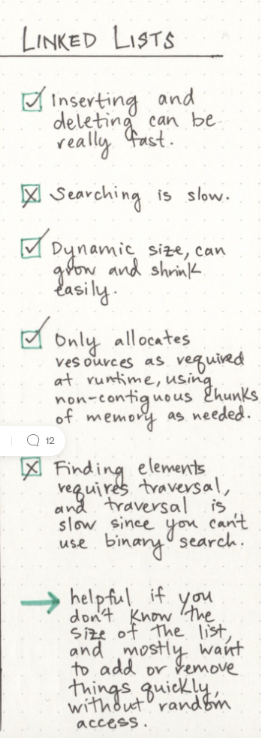 LINKED LISTS
Inserting and
deleting can be
really fast.
Searching is slow.
Dynamic size, can
grow and shrink
easily.
Only allocates
resources as required
at runtime, using
non-contiguous chunks
of memory as needed.
12
Finding elements
requires traversal,
and traversal is
slow since you can't
use binary search.
helpful if you
don't know the
size of the list,
and mostly want
to add or remove
things quickly,
without random
access.